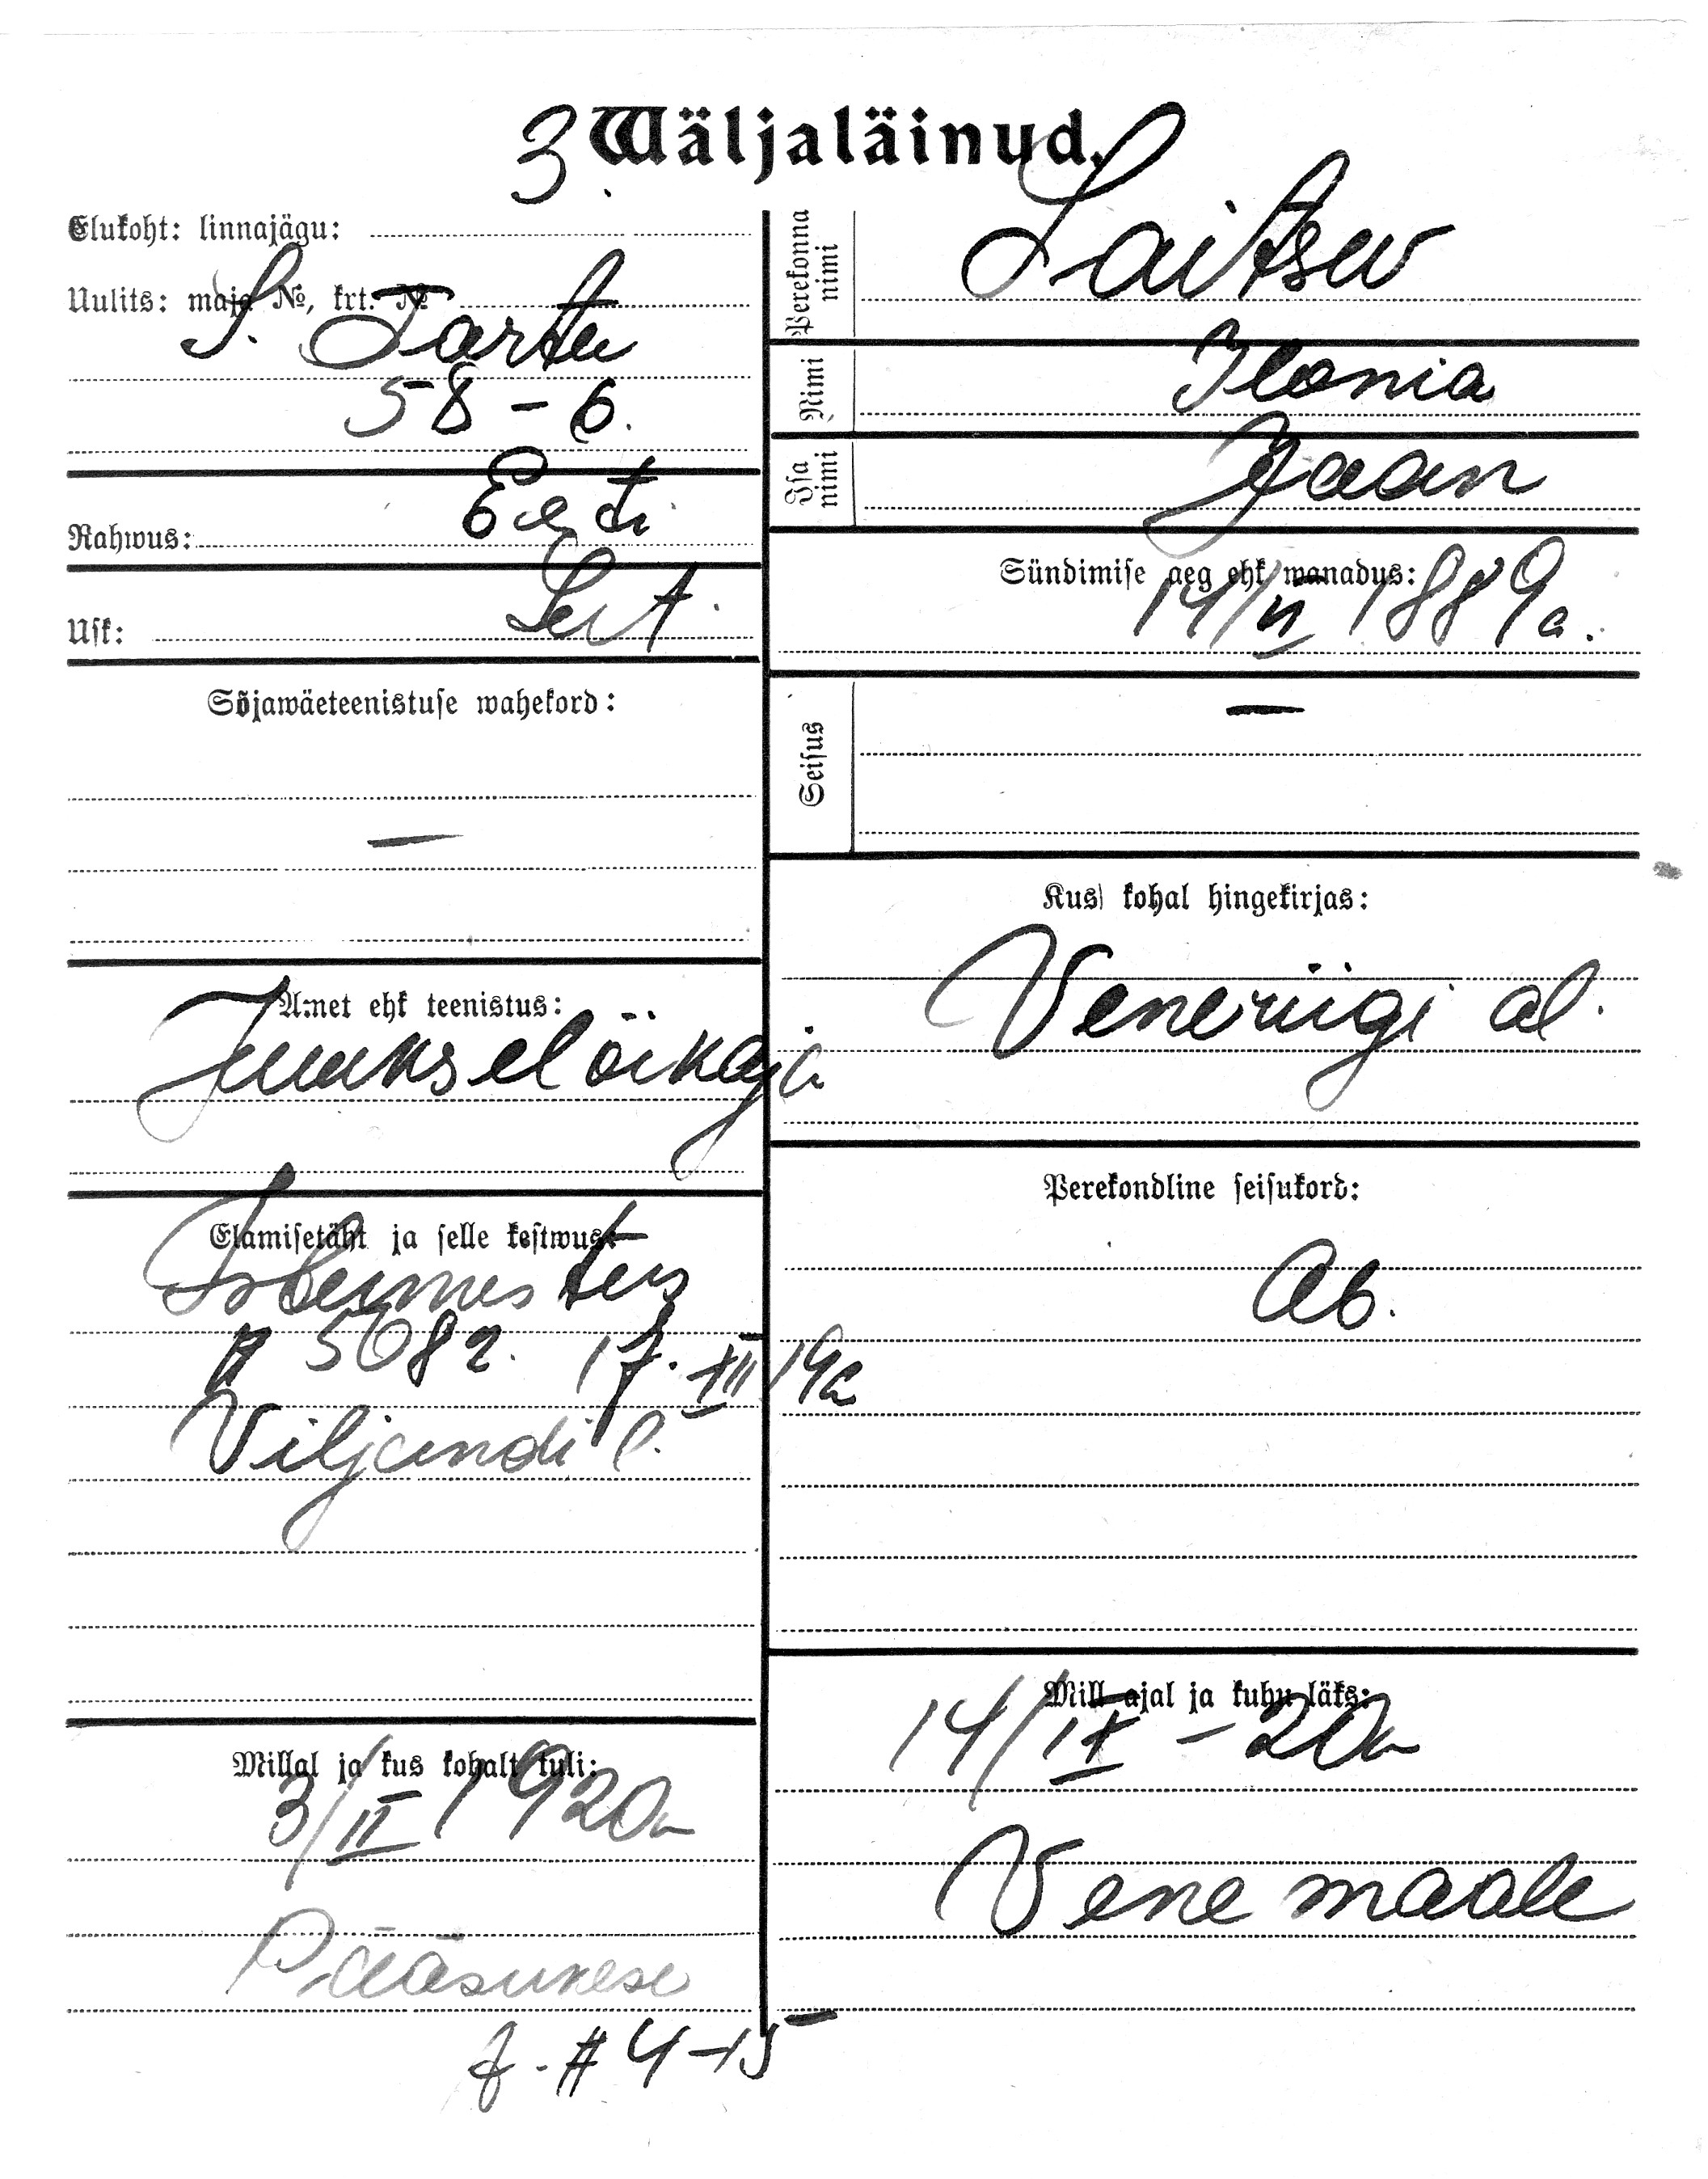 3 Wäljaläinud.
Elukoht: linnajägu:
Uulits: maja №, krt. №
S. Tartu
58 – 6.
Rahwus: Eesti
Usk: Lut.
Sõjawäeteenistuse wahekord:
—
Amet ehk teenistus:
Juukselõikaja
Elamisetäht ja selle kestwus:
5082. 17. XII 19a
Viljandi l.
Millal ja kus kohalt tuli:
3/II 1920a
Pääsukese
# 4–15
Perekonna nimi
Laitsev
Nimi
Ilonia
Isa nimi
Jaan
Sündimise aeg ehk wanadus:
14/VI 1889a.
Seisus
—
Kus kohal hingekirjas:
Veneriigi al.
Perekondline seisukord:
Ab.
Mill ajal ja kuhu läks:
14/IX – 20a
Venemaale